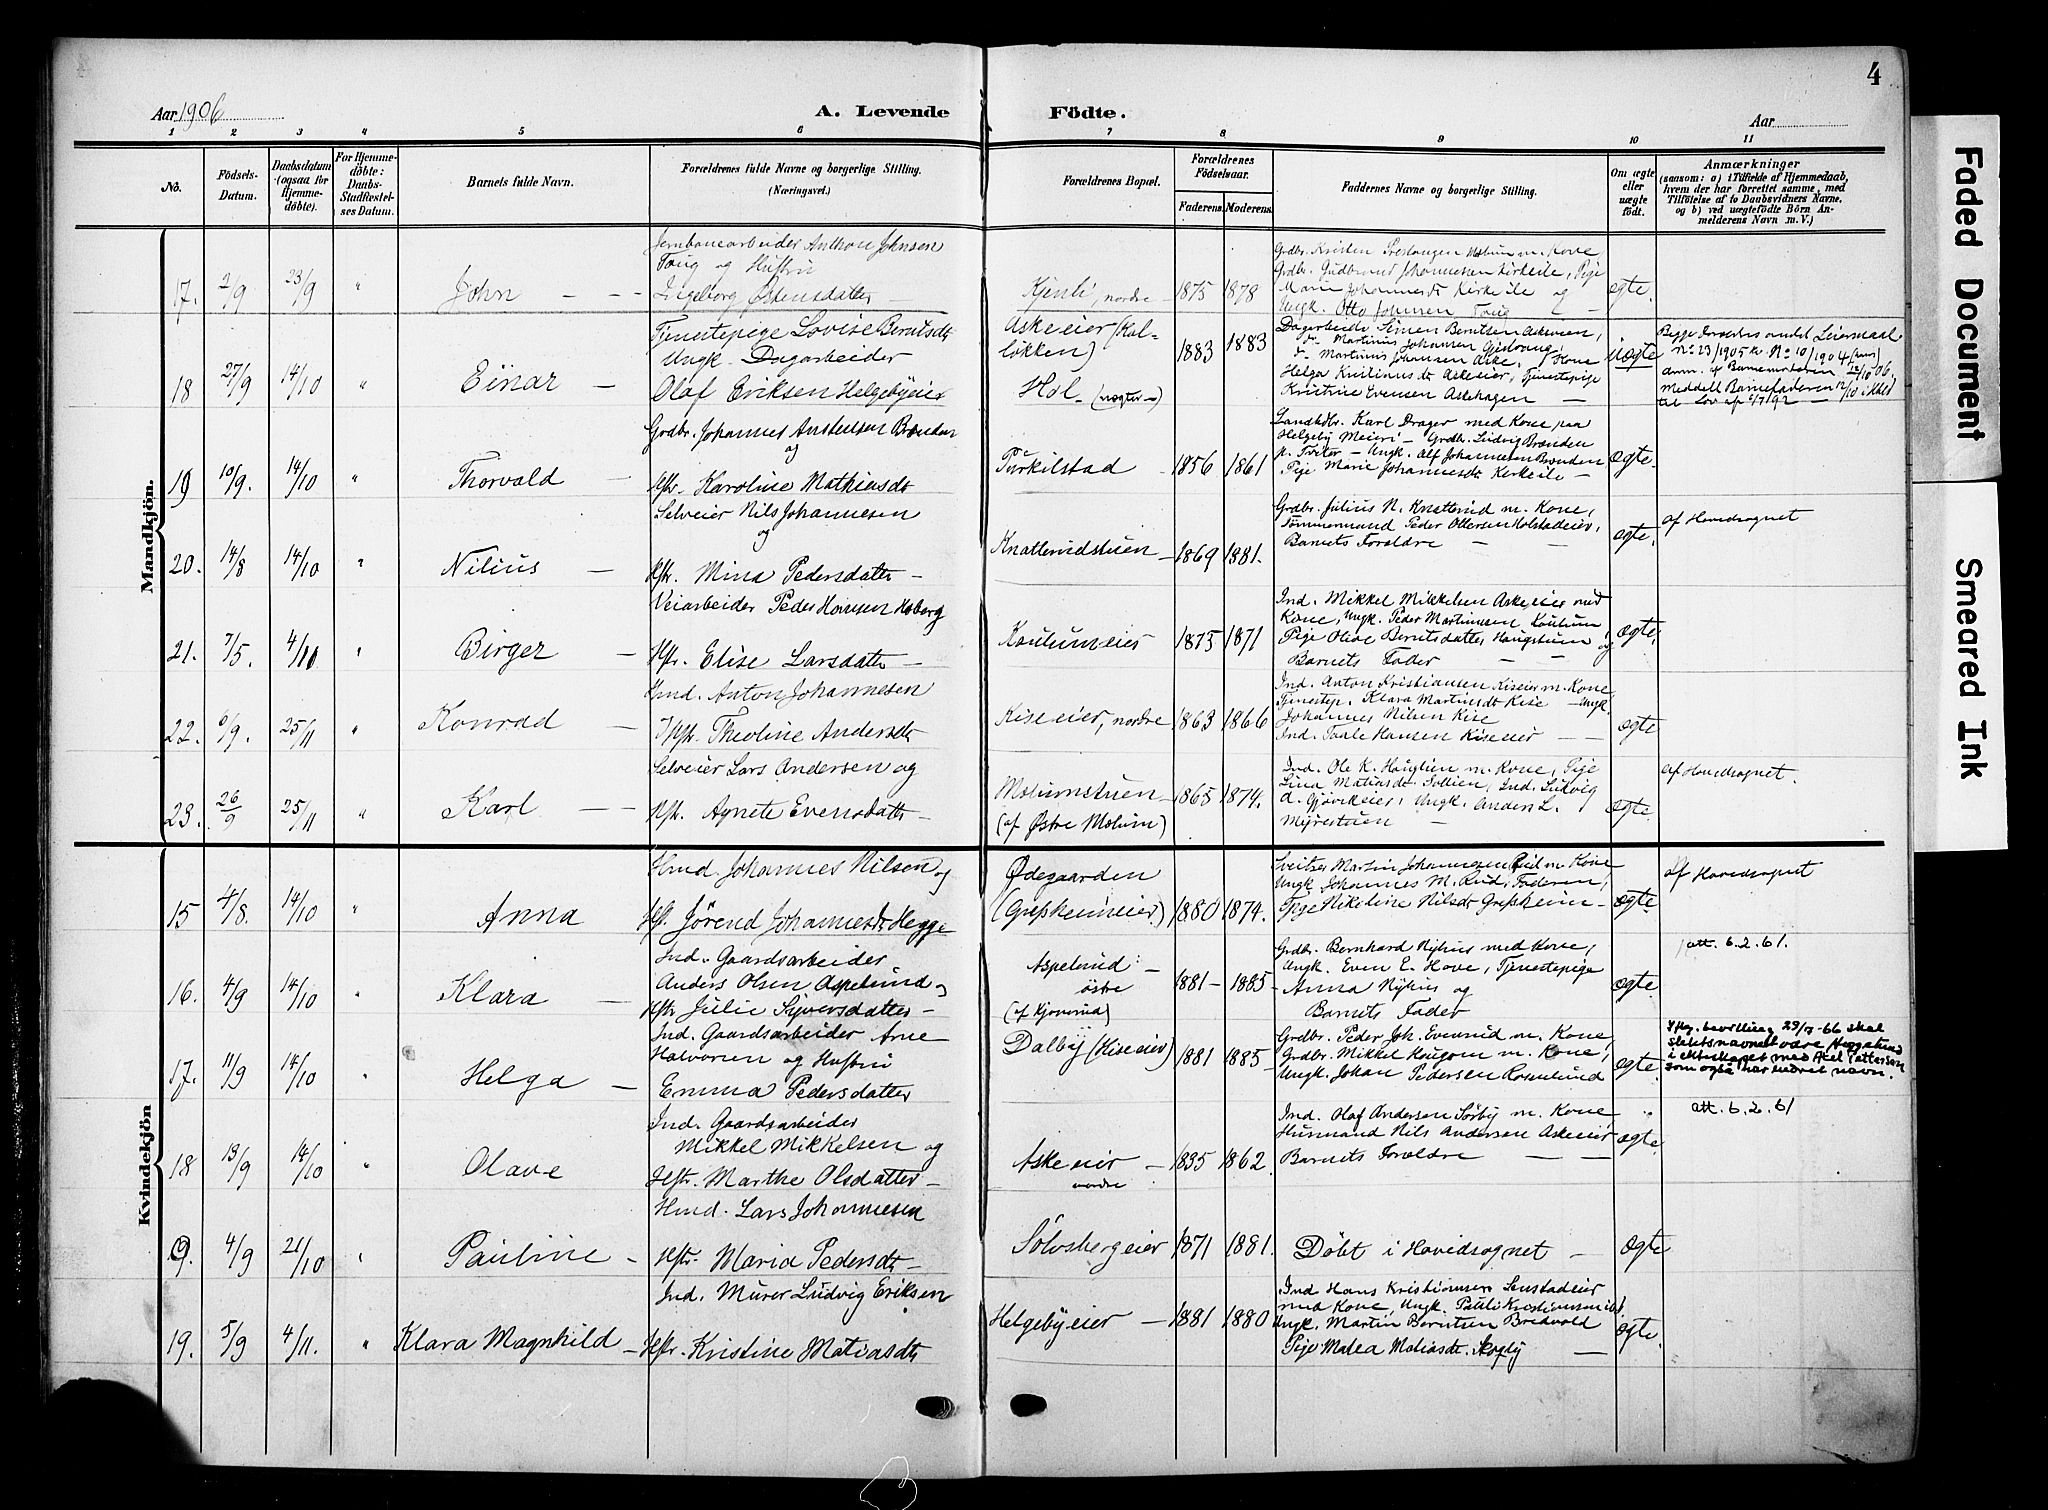 4
Aar 1906
A. Levende
Födte.
Aar
1 2 3 4 5 6 7 8 9 10 11
No.
Födsels-
Datum.
Daabsdatum
(ogsaa for
Hjemme-
döbte).
For Hjemme-
döbte:
Daabs-
Stadfæstel-
ses Datum.
Barnets fulde Navn.
Forældrenes fulde Navne og borgerlige Stilling.
(Næringsvei.)
Forældrenes Bopæl.
Forældrenes
Födselsaar.
Faderens. Moderens.
Faddernes Navne og borgerlige Stilling.
Om ægte
eller
uægte
födt.
Anmærkninger
(saasom: a) i Tilfælde af Hjemmedaab,
hvem der har forrettet samme, med
Tilföielse af to Daabsvidners Navne,
og b) ved uægtefödte Börn An-
melderens Navn m. V.)
Mandkjön.
17. 2/9 23/9 " John
Jernbanearbeider Anthon Johnsen
Toug og Hustru
Ingeborg Østensdatter
Kjenli, nordre 1875 1878
Grdbr. Kristen m. Kone,
Grdbr. Gudbrand Johannesen Kirkeile, Pige
Marie Johannesdt Kirkeile og
Ungk. Otto Johnsen Toug
ægte.
18 27/9 14/10 " Einar
Tjenestepige Lovise Berntsdt
Ungk. Dagarbeider
Olaf Eriksen Helgebyeier
Askeeier (Kal-
løkken)
Hol
1883 1883
Dagarbeider Simen Berntsen Askeeien,
do Martinius Johansen
do Martinus Johansen Aske, Kone
Helga Kristinusdt Askeeier, Tjenestepige
Kristine Evensen Askehagen
uægte
Begge Forældres andet Leiermaal
No 23/1905 No 10/1904
anm. af Barnemoderen 12/10 06.
meddelt Barnefaderen 12/10 i
til Lov af 6/7 92
19 10/9. 14/10 " Thorvald
Grdbr. Johannes Anstensen Brænden
og
Hstr. Karoline Mathiasdt
Turkilstad 1856 1861
Landhdlr. Karl Drager med Kone, paa
Helgeby Meieri - Grdbr. Ludvig Brænden
Ungk. Alf Johannesen Brænden
Pige Marie Johannesdt Kirkeile
ægte.
20. 14/8 14/10 " Nilius
Selveier Nils Johannesen
og
Hstr. Mina Pedersdatter
Knatterudstuen 1869 1881.
Grdbr. Julius N. Knatterud m. Kone,
Tømmermand Peder Ottersen Holstadeier,
Barnets Forældre
ægte.
af Hovedsognet
21. 7/5. 4/10 " Birger
Veiarbeider Peder Hansen Hoberg
Hstr. Elise Larsdatter
Kaulumeier 1875 1871
Ind. Mikkel Mikkelsen Askeeier med
Kone, Ungk. Peder Martinusen Kaulum,
Pige Olive Berntsdatter Haugstuen og
Barnets Fader
ægte.
22. 6/9. 25/11 " Konrad
Hmd. Anton Johannesen
Hstr. Theoline Andersdt
Kiseeier, nordre 1863 1866
Ind. Anton Kristiansen Kiseeier m. Kone,
Tjenestep. Klara Martinsdt Kise - Ungk.
Johannes Nilsen Kise
Ind. Paale Hansen Kiseeier
ægte
23. 26/9 25/11 " Karl
Selveier Lars Andersen og
Hstr. Agnete Evensdatter
Molumstuen
(af Østre Molum)
1865 1874.
Ind. Ole K. Hauglien m. Kone, Pige
Lina Matiasdt Sollien, Ind. Ludvig
d. Gjøvikeier, Ungk. Anders L.
Myrestuen
ægte.
af Hovedsognet.
Kvindekjön
15 4/8. 14/10 " Anna
Hmd. Johannes Nilsen og
Hst. Jörend Johannesdt Hegge
Ødegaarden
(Grefsheimeier)
1880 1874.
Sveitser Martin Johannesen Rud m. Kone
Ungk. Johannes M. Rud, Faderen,
Pige Nikoline Nilsdt Grefsheim
ægte.
af Hovedsognet
16. 4/9 14/10 " Klara
Ind. Gaardsarbeider
Anders Olsen Aspelund og
Hstr. Julie Syversdatter
Aspelund
østre
(af Kjonerud)
1881 1885
Grdbr. Bernhard Nyhus med Kone,
Ungk. Even E. Hove, Tjenestepige
Anna Nyhus og
Barnets Fader
ægte.
att. 6.2.61.
17. 11/9 14/10 " Helga
Ind. Gaardsarbeider Arne
Halvorsen og Hustru
Emma Pedersdatter
Dalby (Kiseeier) 1881 1885
Grdbr. Peder Joh. Evenrud m. Kone,
Grdbr. Mikkel Haugom m. Kone,
Ungk. Johan Pedersen Rosenlund
ægte.
Iflg. bevilling 29/7-66 skal
slektsnavnet være Heggelund
i ekteskapet med Axel Pettersen
som også har endret navn.
18 13/9 14/10 " Olave
Ind. Gaardsarbeider
Mikkel Mikkelsen og
Hstr. Marthe Olsdatter
Askeeier
nordre
1835 1862.
Ind. Olaf Andersen Sørby m. Kone
Husmand Nils Andersen Askeeier
Barnets Forældre
ægte.
att. 6.2.61
9. 4/9 21/10 " Pauline
Hmd. Lars Johannesen
Hstr. Maria Pedersdt
Sölvsbergeier 1871 1881.
Döbt i Hovedsognet
ægte
19. 5/9 4/11. " Klara Magnhild
Ind. Murer Ludvig Eriksen
Hstr. Kristine Matiasdt
Helgebyeier 1881 1880
Ind Hans Kristiansen Senstadeier
med Kone, Ungk. Pauli Kristiansen ibd.
Ungk. Martin Berntsen Bredvold
Pige Matea Matiasdt. Skogby
ægte.
Faded Document
Smeared Ink